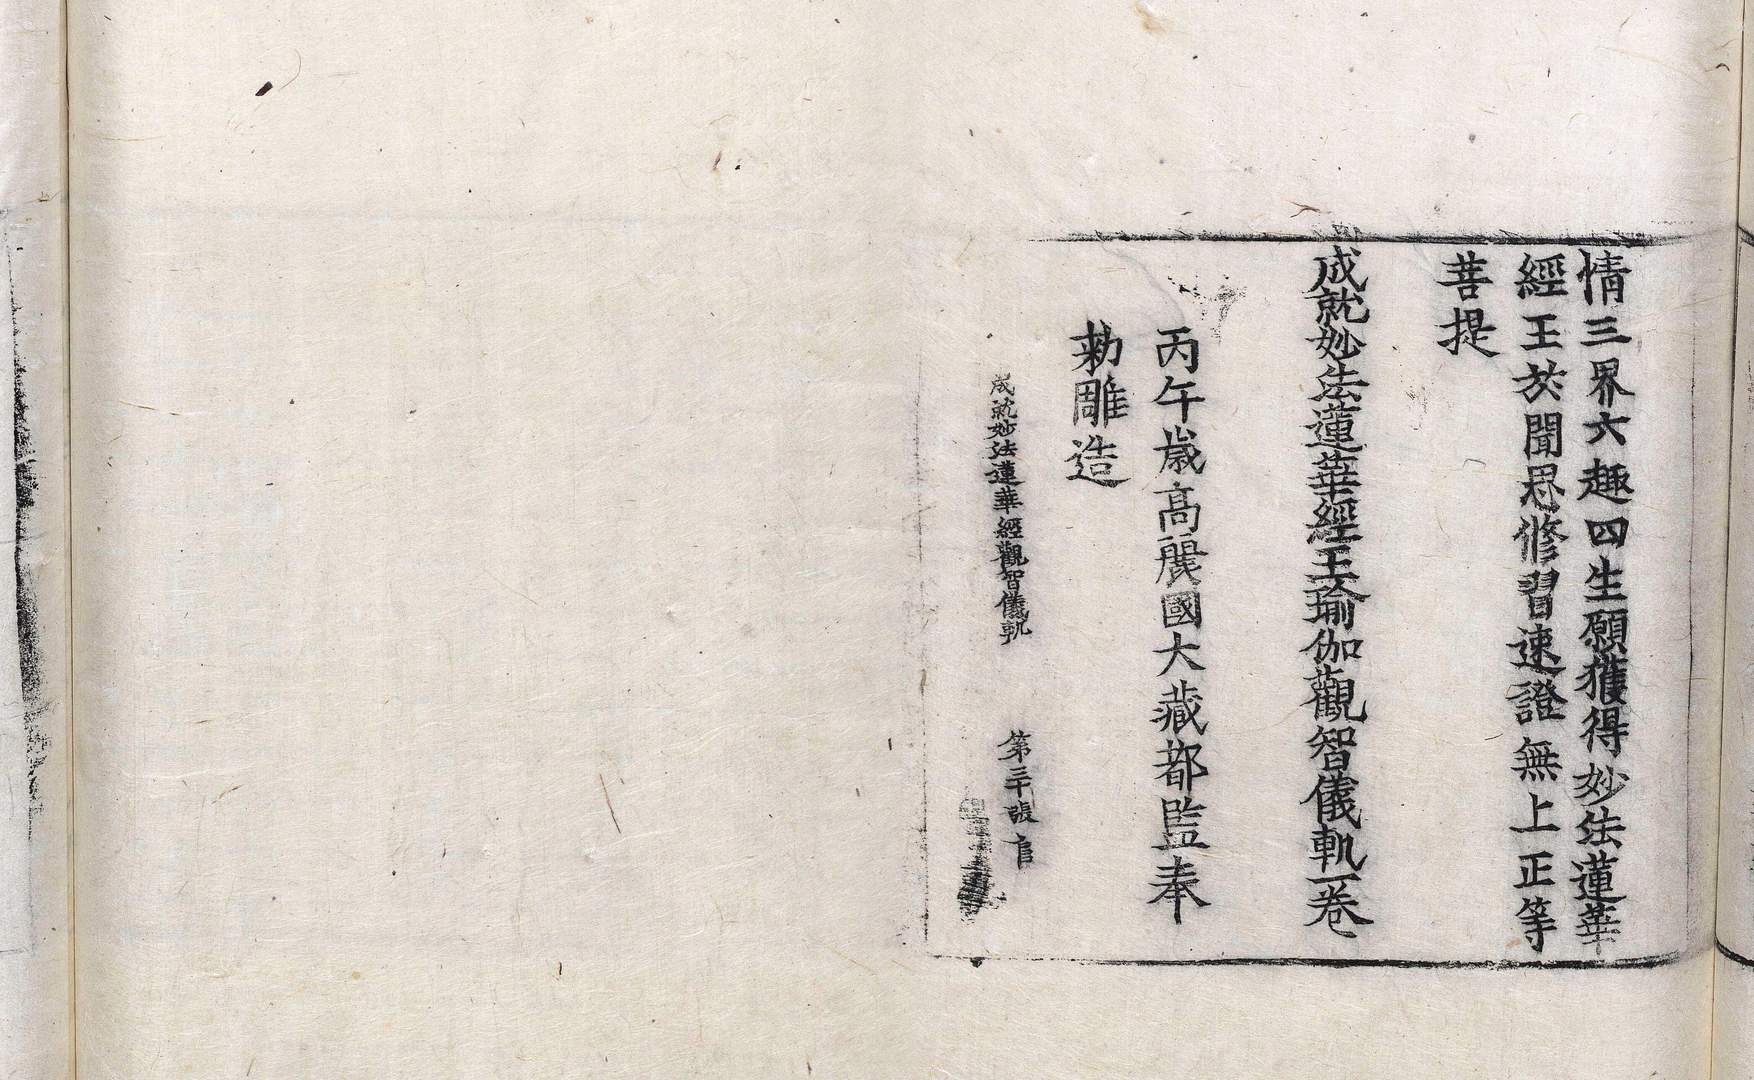 情三界六趣四生願獲得妙法蓮華
經王於聞思修習速證無上正等
菩提
成就妙法蓮華經王瑜伽觀智儀軌一卷
丙午歲高麗國大藏都監奉
勅雕造
成就妙法蓮華經觀智儀軌 第三十張